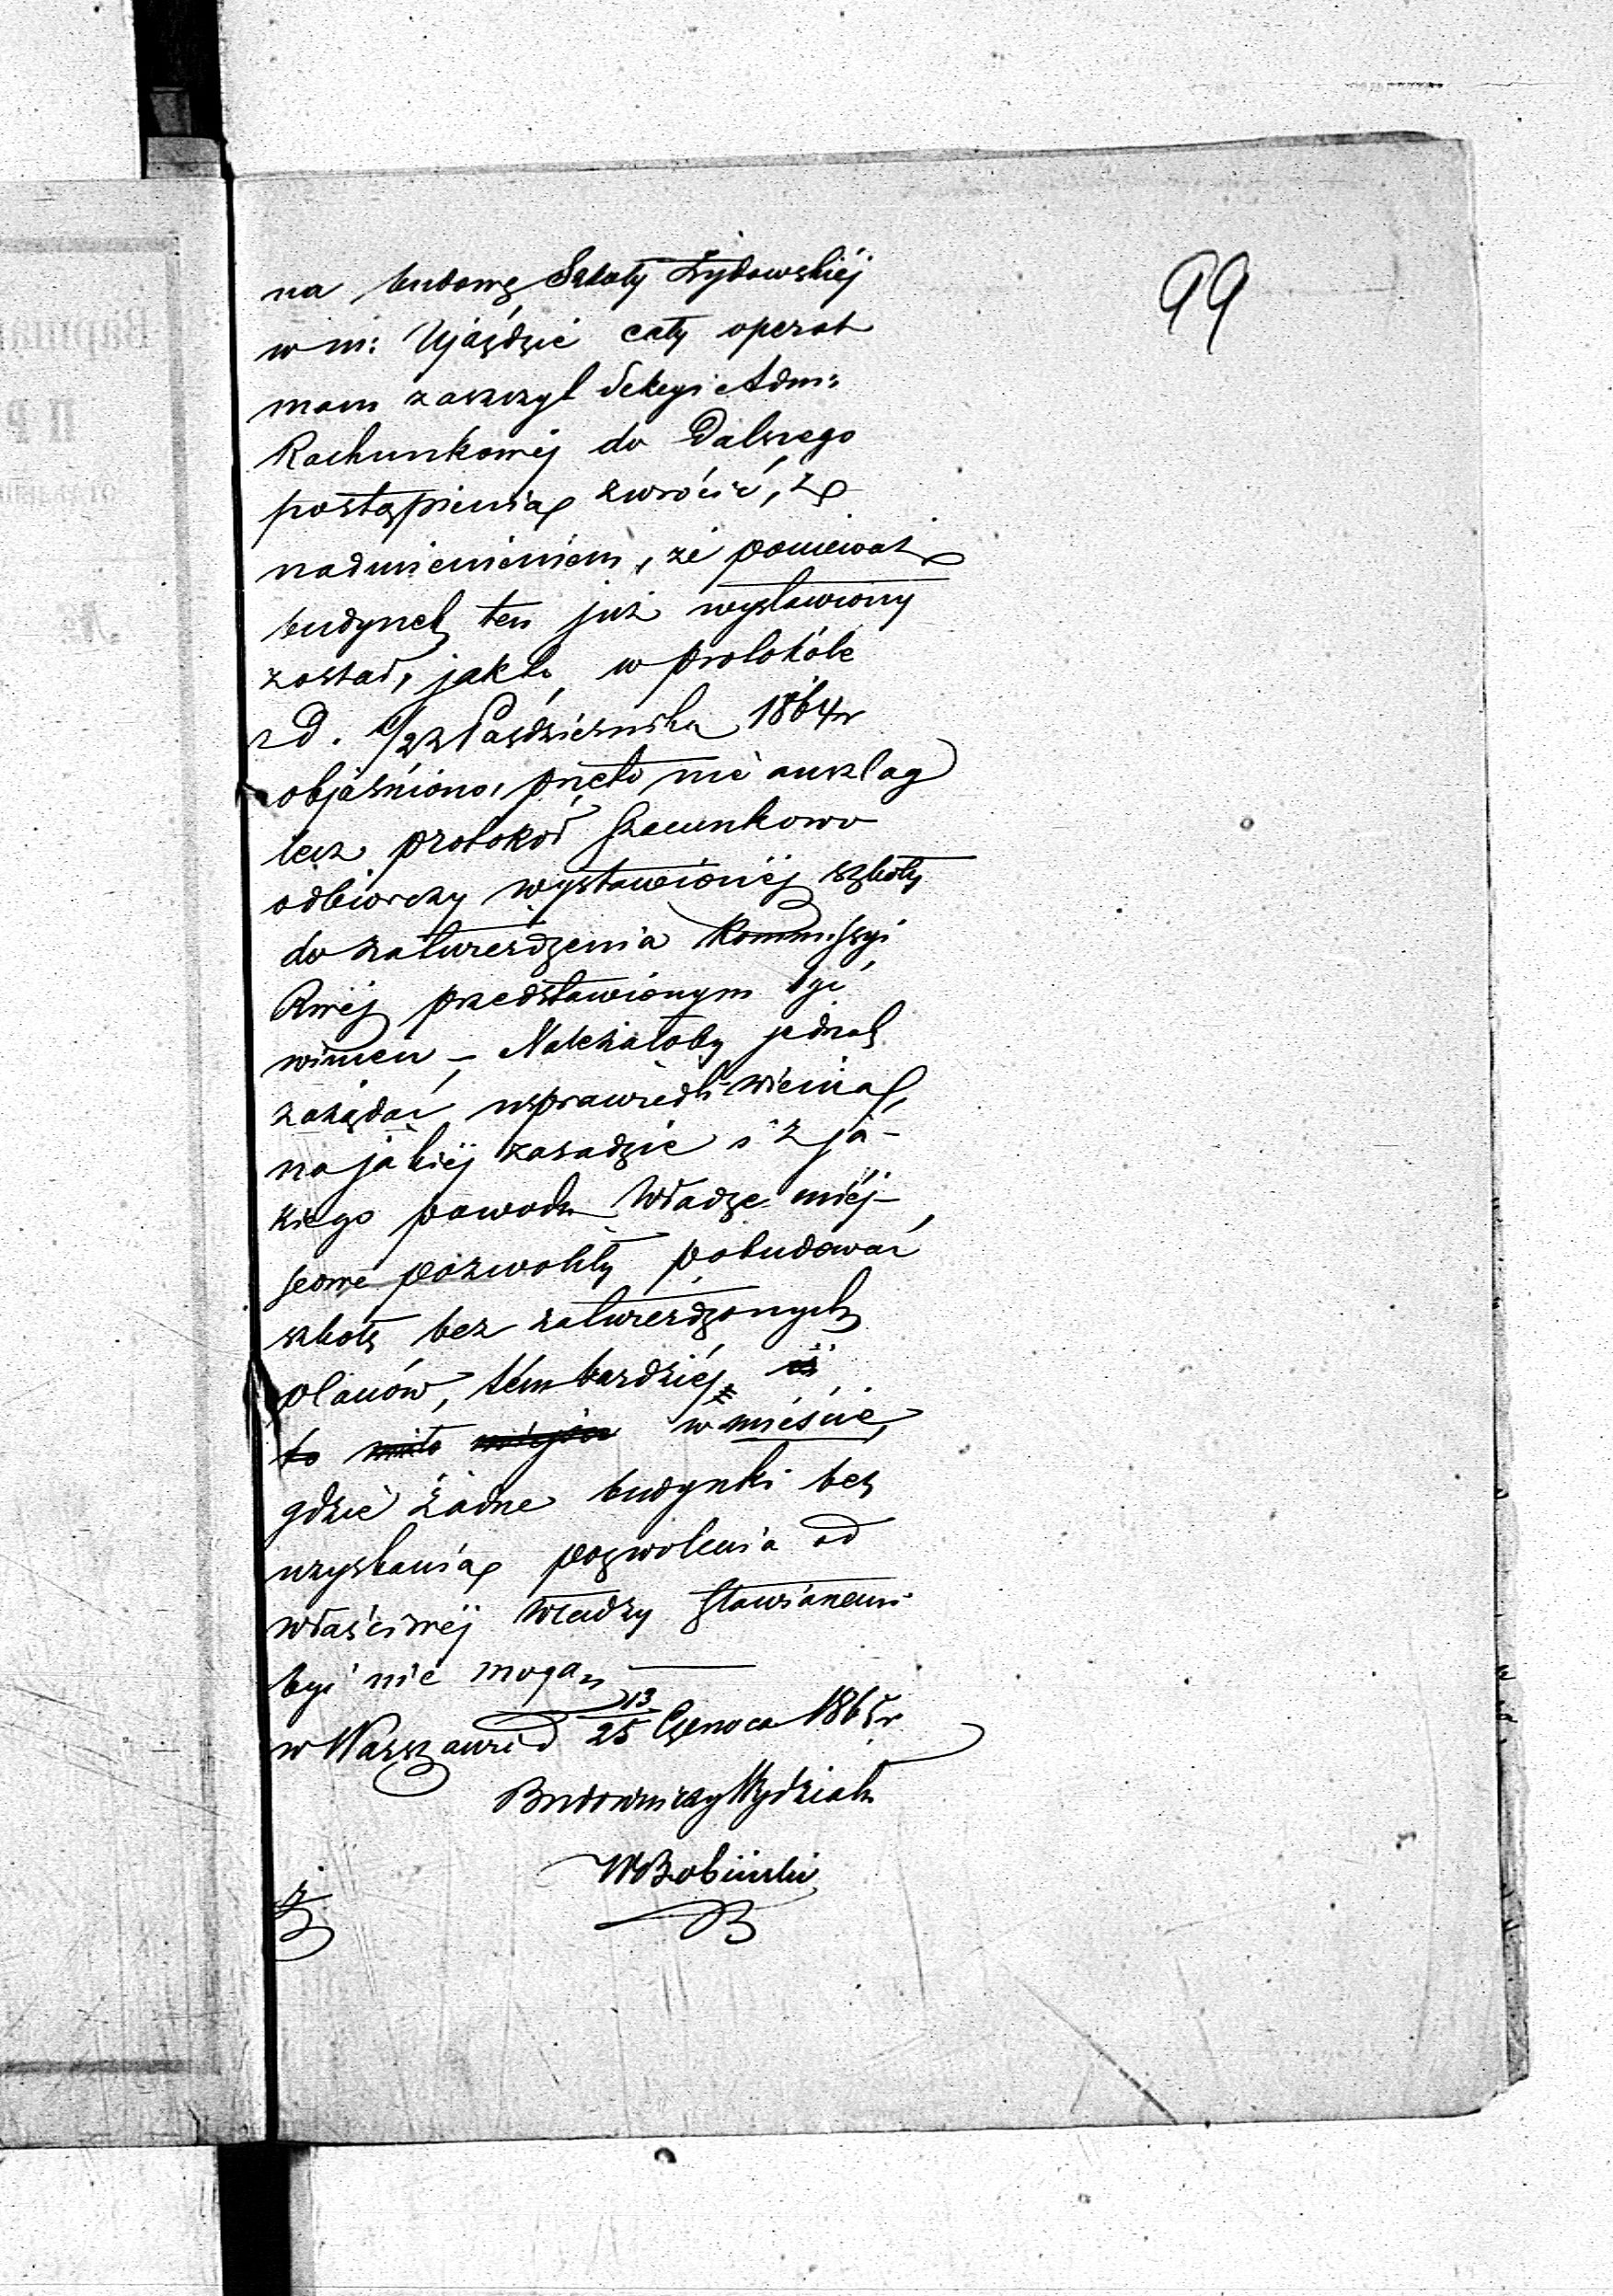 99
na budowę Szkoły Żydowskiéj
w m: Ujaździe cały operat
mam zaszczyt Sekcyi Adm:
Rachunkowéj do dalszego
postąpienia zwrócić, z
nadmienieniem, że ponieważ
budynek ten już wystawiony
został, jak to w protokóle
z d. /22 Października 1864 r
objaśniono, przeto nie anszlag
lecz protokół szacunkowo
odbiorczy wystawionéj szkoły
do zatwierdzenia Kommissyi
Rwéj przedstawionym być
winien – Należałoby jednak
zażądać usprawiedliwienia,
na jakiéj zasadzie i z ja-
kiego powodu Władze miéj-
scowe pozwoliły pobudować
szkołę bez zatwierdzonych
planów, tém bardziéj, iż
to w mieście,
gdzie żadne budynki bez
uzyskania pozwolenia od
właściwéj władzy stawianemi
być nie mogą. —
w Warszawie d 13/25 Czerwca 1865 r
Budowniczy Wydziału
W Bobiński